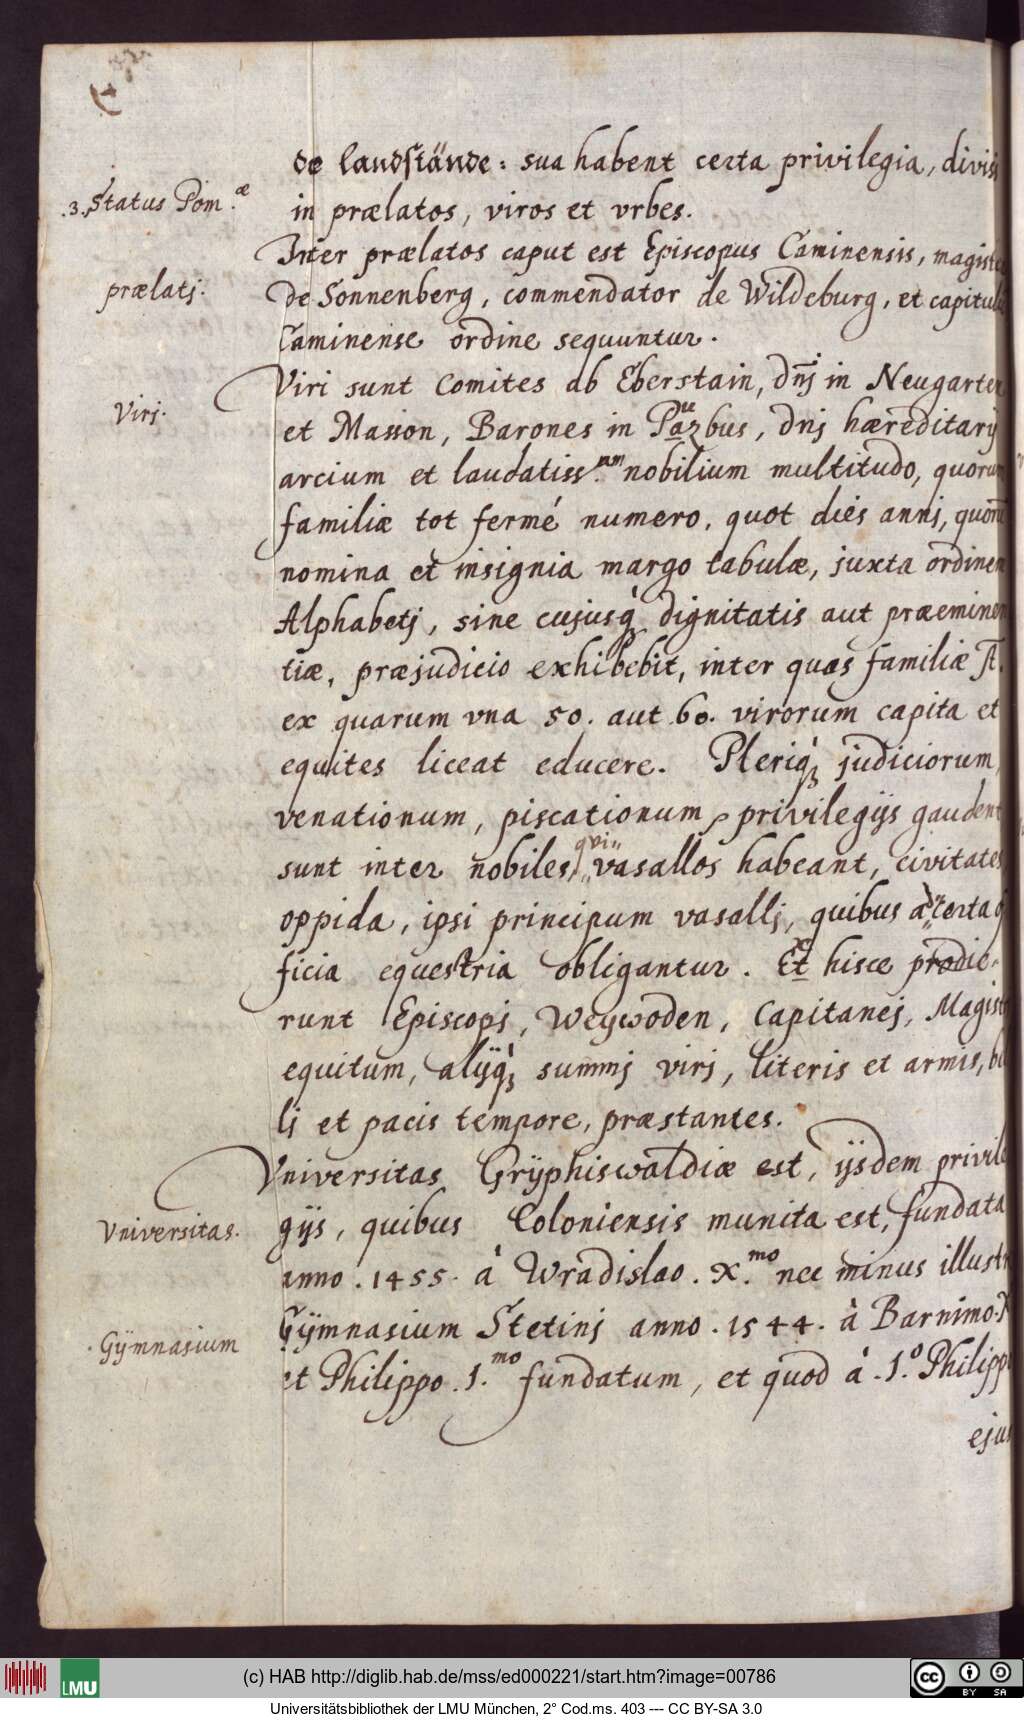 de landstände: sua habent certa privilegia, divisi
.3. Status Pom.æ
in prælatos, viros et vrbes.
Inter prælatos caput est Episcopus Caminensis, magister
prælatj.
de Sonnenberg, commendator de Wildeburg, et capitulu
Caminense ordine sequuntur.
Viri sunt Comites ab Eberstain, dnj in Neugarten
Virj.
et Masson, Barones in Putbus, dnj hæreditarij
arcium et laudatiss.mm nobilium multitudo, quorum
familiæ tot fermé numero, quot dies annj, quorū
nomina et insignia margo tabulæ, juxta ordinem
Alphabetj, sine cujusq̀ dignitatis aut præeminen
tiæ, præjudicio exhibebit, inter quas familiæ st.
ex quarum vna 50. aut 60. virorum capita et
equites liceat educere. Pleriq̀ judiciorum,
venationum, piscationum, privilegijs gaudent
sunt inter nobiles, qui vasallos habeant, civitates
oppida, ipsi principum vasallj, quibus ad certa of
ficia equestria obligantur. Ex hisce prodie-
runt Episcopj, Weywoden, Capitanej, Magist
equitum, alijq̀ summj virj, literis et armis, bel
lj et pacis tempore, præstantes.
Vniversitas Grÿphiswaldiæ est, ijsdem privile
Vniversitas.
gijs, quibus Coloniensis munita est, fundata
anno .1455. á Wradislao .X.mo nec minus illustr
Gÿmnasium Stetinj anno .1544. à Barnimo.X
.Gÿmnasium
et Philippo .I.mo fundatum, et quod á .I.o Philipp
ejus
(c) HAB http://diglib.hab.de/mss/ed000221/start.htm?image=00786
LMU
cc BY SA
Universitätsbibliothek der LMU München, 2° Cod.ms. 403 --- CC BY-SA 3.0